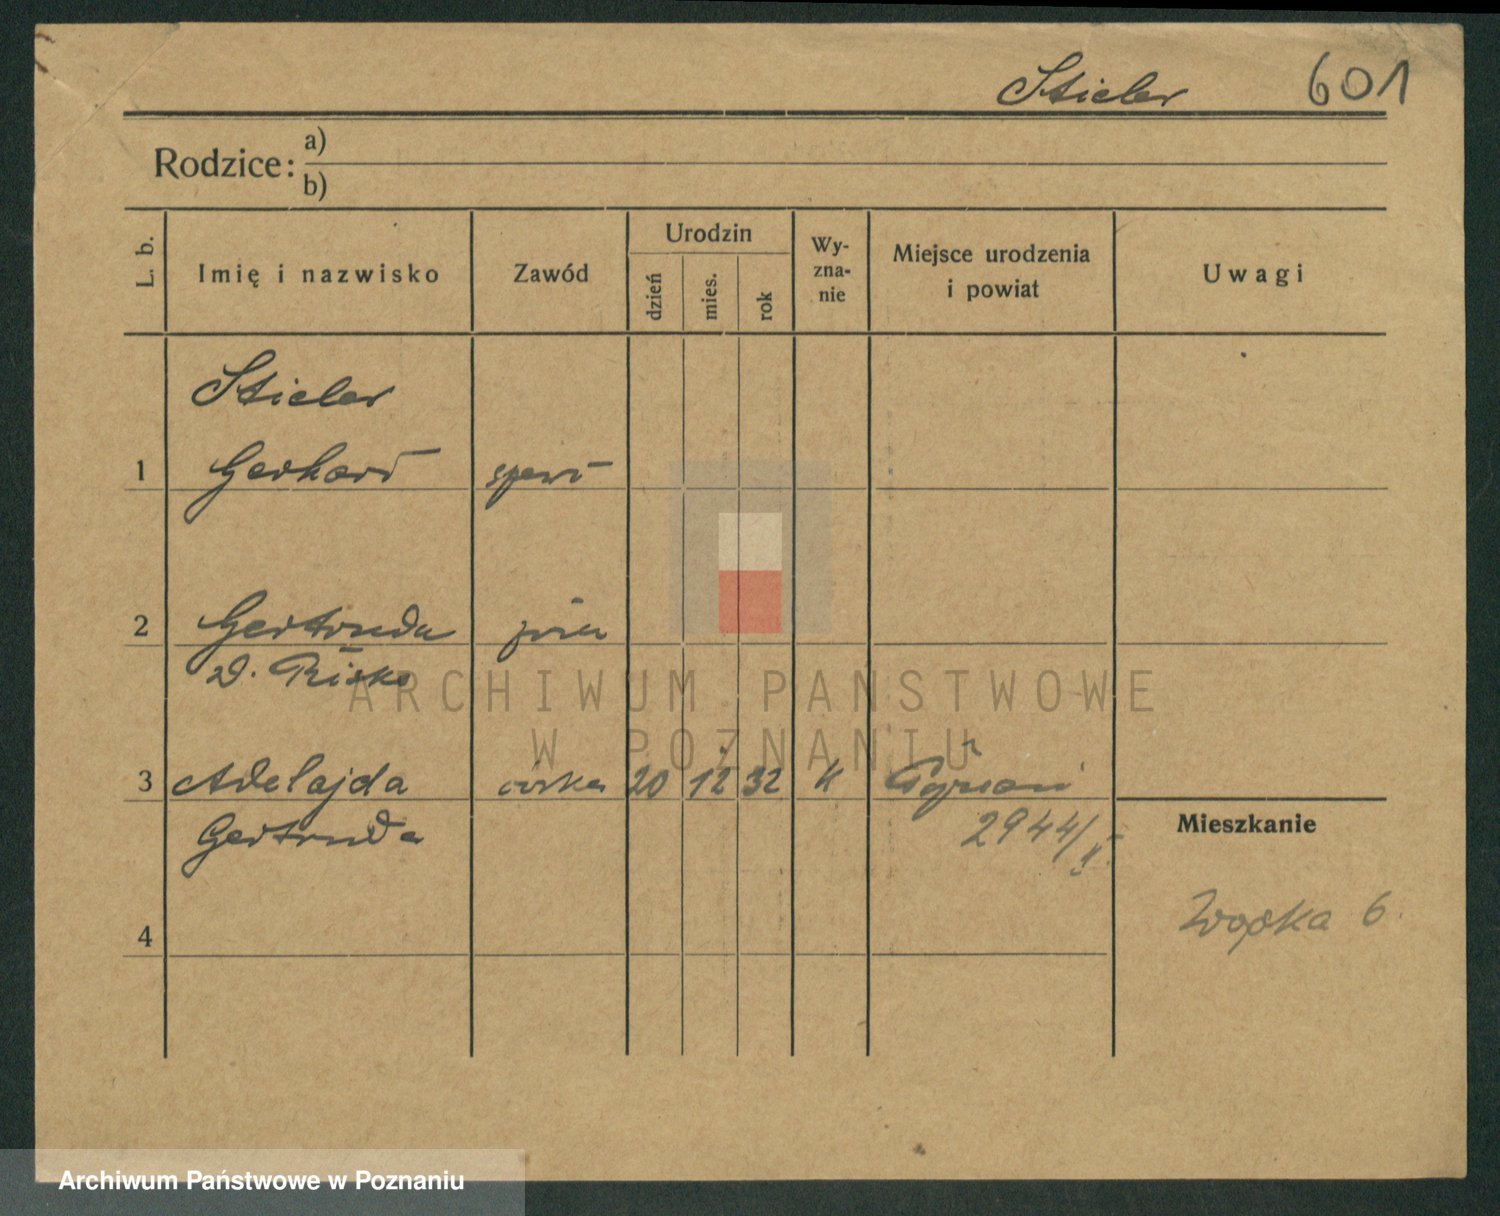 Stieler 601
Rodzice: a)
b)
L. b.
Imię i nazwisko
Zawód
Urodzin
dzień
mies.
rok
Wy-
zna-
nie
Miejsce urodzenia
i powiat
Uwagi
Stieler
1 Gerhard
2 Gertruda żona
3 Adelajda córka 20 12 32 K Poznań
Gertruda 2944/
Mieszkanie
6
4
ARCHIWUM PAŃSTWOWE
W POZNANIU
Archiwum Państwowe w Poznaniu